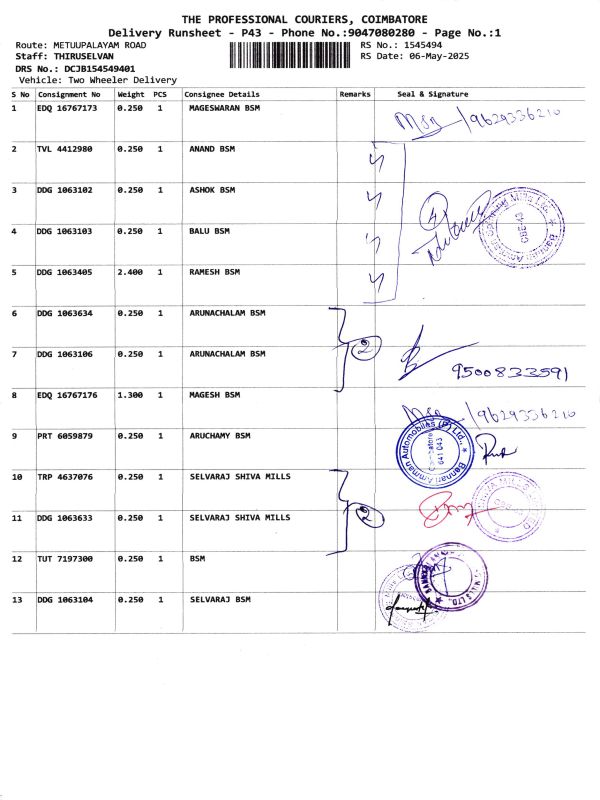 THE PROFESSIONAL COURIERS, COIMBATORE
Delivery Runsheet - P43 - Phone No.:9047080280 - Page No.:1
Route: METUUPALAYAM ROAD RS No.: 1545494
Staff: THIRUSELVAN RS Date: 06-May-2025
DRS No.: DCJB154549401
Vehicle: Two Wheeler Delivery
S No Consignment No Weight PCS Consignee Details Remarks Seal & Signature
1 EDQ 16767173 0.250 1 MAGESWARAN BSM 9629336210
2 TVL 4412980 0.250 1 ANAND BSM
3 DDG 1063102 0.250 1 ASHOK BSM
4 DDG 1063103 0.250 1 BALU BSM
CBE-43
5 DDG 1063405 2.400 1 RAMESH BSM
6 DDG 1063634 0.250 1 ARUNACHALAM BSM
2
7 DDG 1063106 0.250 1 ARUNACHALAM BSM 9500833591
8 EDQ 16767176 1.300 1 MAGESH BSM 9629336210
9 PRT 6059879 0.250 1 ARUCHAMY BSM
Bannari Amman Automobiles (P) Ltd.,
Coimbatore
641 043
10 TRP 4637076 0.250 1 SELVARAJ SHIVA MILLS
2
11 DDG 1063633 0.250 1 SELVARAJ SHIVA MILLS
12 TUT 7197300 0.250 1 BSM
13 DDG 1063104 0.250 1 SELVARAJ BSM